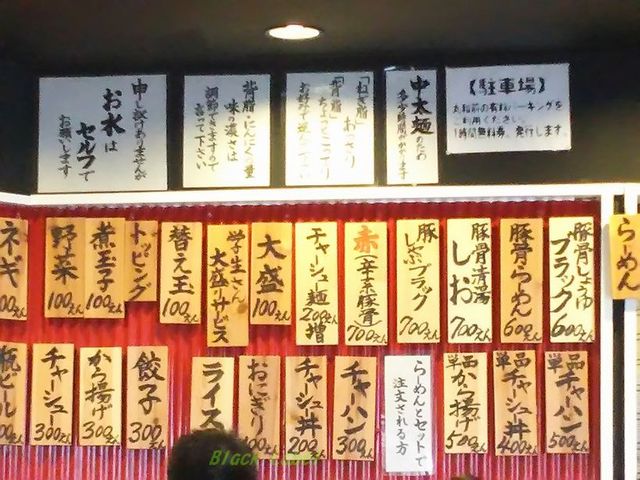 申し訳ありませんが
お水は
セルフで
お願います
背脂・にんにくの量
味の濃さは
調節できますので
言って下さい
「ねぎ脂」あっさり
「背脂」ちょっとこってり
中太麺のため
多少時間がかかります
【駐車場】
ご利用ください。
1時間無料券、発行します。
らーめん
豚骨しょうゆ
ブラック
600えん
豚骨らーめん
600えん
豚骨清湯
しお
700えん
豚しぶブラック
700えん
赤(辛系豚骨)
700えん
チャーシュー麺
200えん増
大盛
100えん
学生さん
大盛サービス
替え玉
100えん
トッピング
煮玉子
100えん
野菜
100えん
ネギ
00えん
単品
チャーハン
500えん
単品
チャーシュー丼
400えん
単品
から揚げ
500えん
らーめんとセットで
注文される方
チャーハン
300えん
チャーシュー丼
200えん
おにぎり
100えん
ライス
餃子
300えん
から揚げ
300えん
チャーシュー
300えん
瓶ビール
00えん